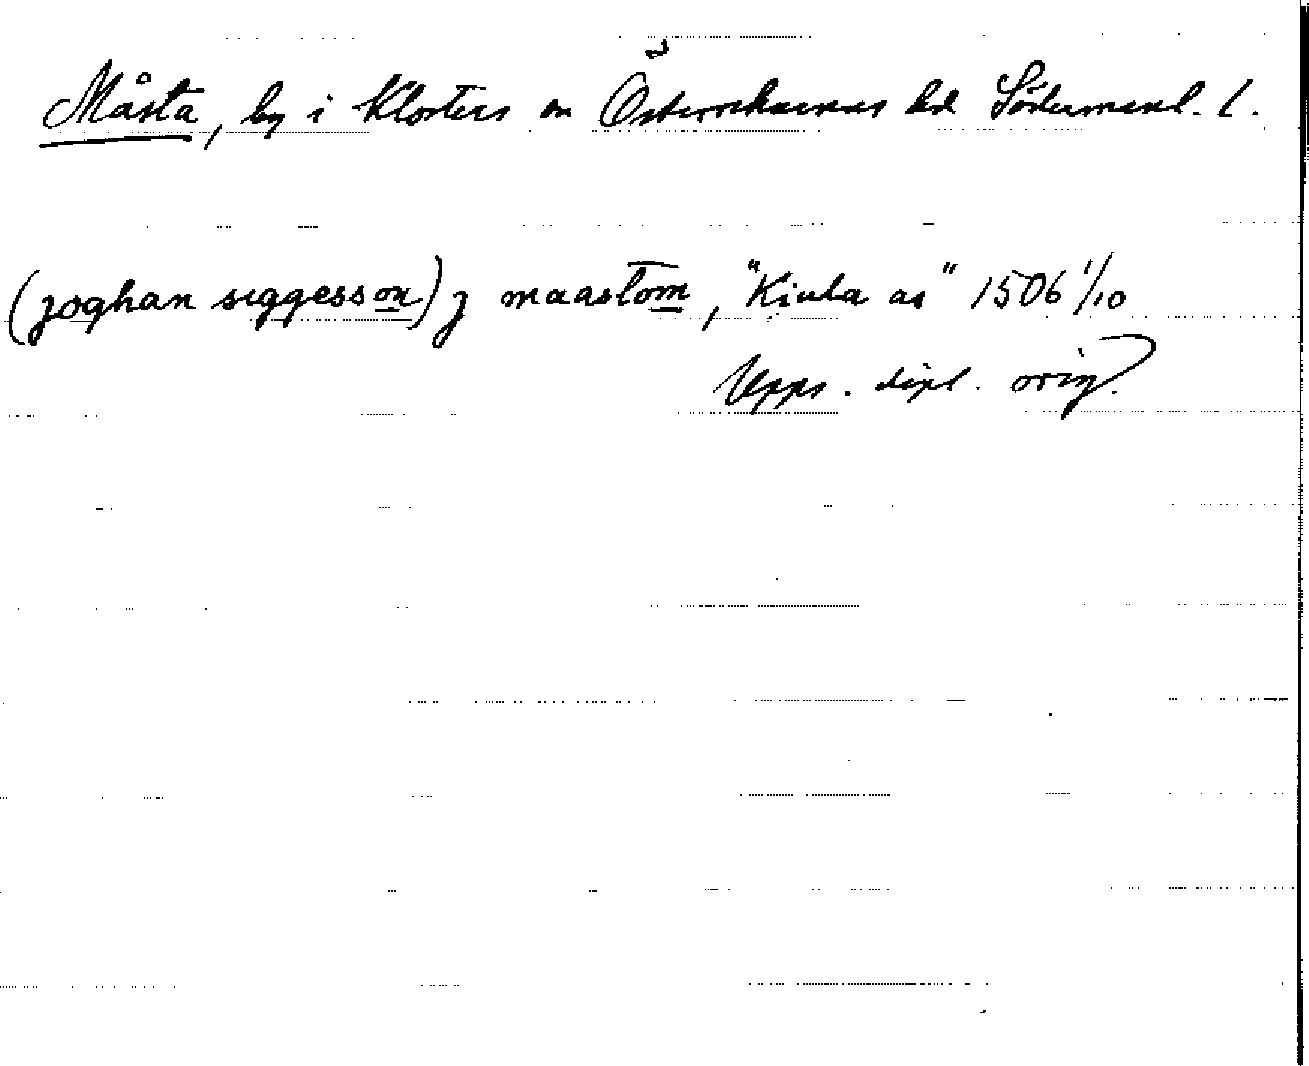 Måsta, by i Klosters sn Österrekarnes hd Södermanl. l.
(joghan siggesson) j maastom, "Kiula as" 1506 1/10
Upps. dipl. orig.